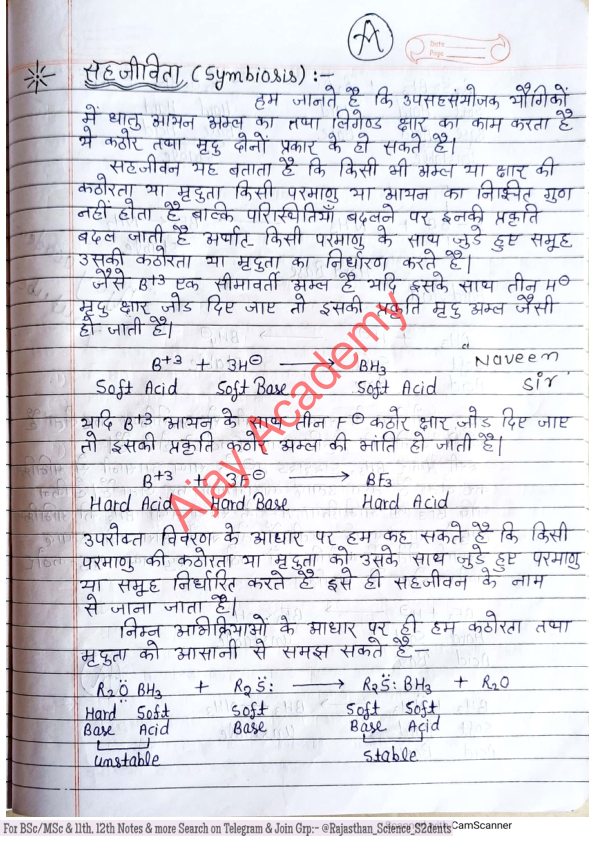 A
Date
Page
सहजीविता (Symbiosis) :-
हम जानते है कि उपसहसंयोजक यौगिकों
में धातु आयन अम्ल का तथा लिगेण्ड क्षार का काम करता है
ये कठोर तथा मृदु दोनों प्रकार के हो सकते है।
सहजीवन यह बताता है कि किसी भी अम्ल या क्षार की
कठोरता या मृदुता किसी परमाणु या आयन का निश्चित गुण
नहीं होता है बल्कि परिस्थितियाँ बदलने पर इनकी प्रकृति
बदल जाती है अर्थात् किसी परमाणु के साथ जुडे हुए समूह
उसकी कठोरता या मृदुता का निर्धारण करते है।
जैसे B+3 एक सीमावर्ती अम्ल है यदि इसके साथ तीन H⊖
मृदु क्षार जोड दिए जाए तो इसकी प्रकृति मृदु अम्ल जैसी
हो जाती है।
B+3 + 3H⊖ ⟶ BH3
Soft Acid Soft Base Soft Acid
Naveen
Sir
यदि B+3 आयन के साथ तीन F⊖ कठोर क्षार जोड दिए जाए
तो इसकी प्रकृति कठोर अम्ल की भांति हो जाती है।
B+3 + 3F⊖ ⟶ BF3
Hard Acid Hard Base Hard Acid
उपरोक्त विवरण के आधार पर हम कह सकते है कि किसी
परमाणु की कठोरता या मृदुता को उसके साथ जुडे हुए परमाणु
या समूह निर्धारित करते है इसे ही सहजीवन के नाम
से जाना जाता है।
निम्न अभिक्रियाओं के आधार पर ही हम कठोरता तथा
मृदुता को आसानी से समझ सकते है-
R2Ö BH3 + R2S̈: ⟶ R2S̈: BH3 + R2O
Hard Soft Soft Soft Soft
Base Acid Base Base Acid
Unstable Stable
Ajay Academy
For BSc/MSc & 11th, 12th Notes & more Search on Telegram & Join Grp:- @Rajasthan_Science_S2dents
CamScanner